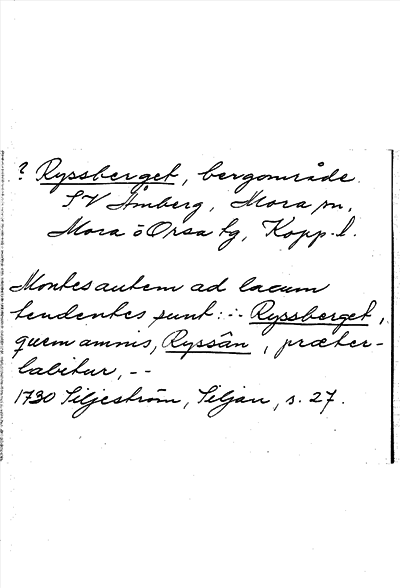 ? Ryssberget, bergområde
SV Åmberg, Mora sn,
Mora o Orsa tg, Kopp. l.
Montes autem ad lacum
tendentes sunt: -- Ryssberget,
quem amnis, Ryssån, præter-
labitur, --
1730 Siljeström, Siljan, s. 27.